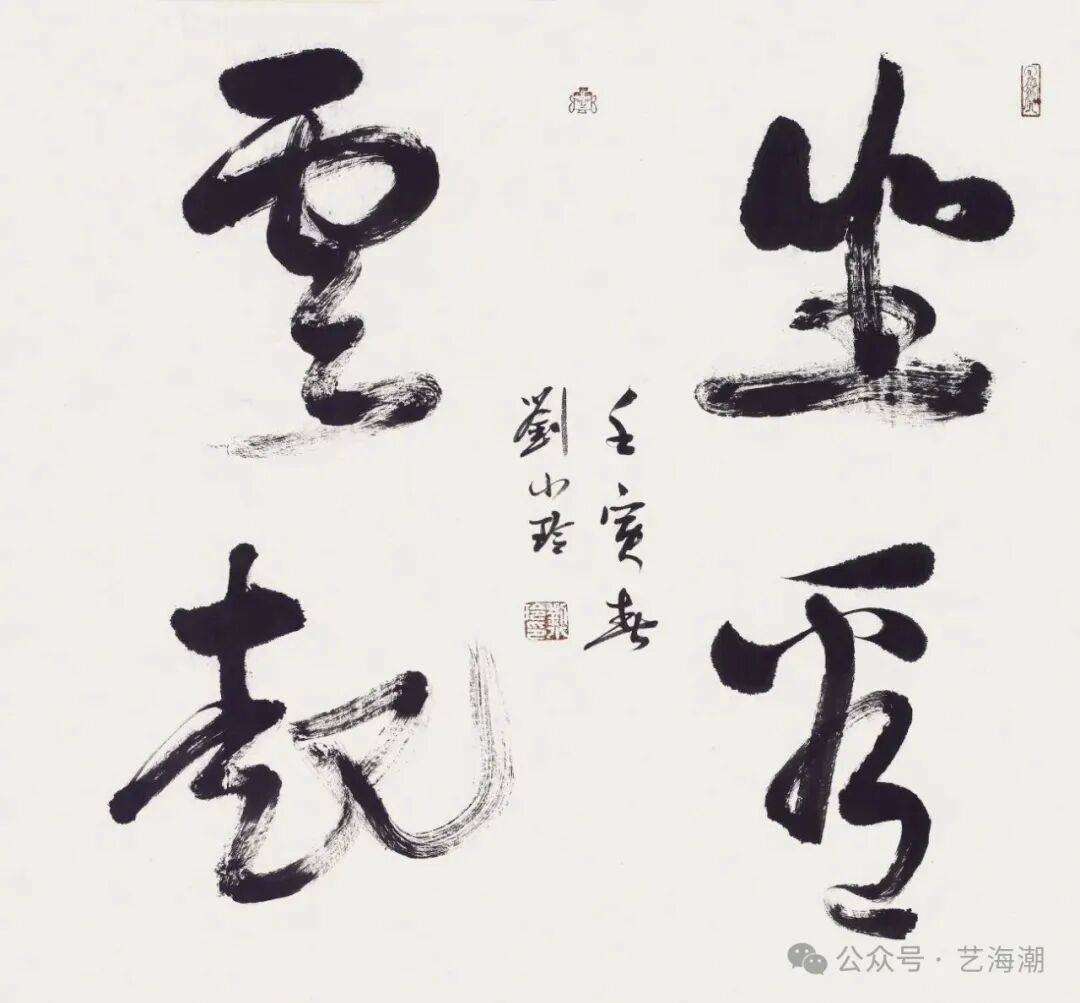 坐看
雲起
壬寅春
劉小玲
公众号·艺海潮